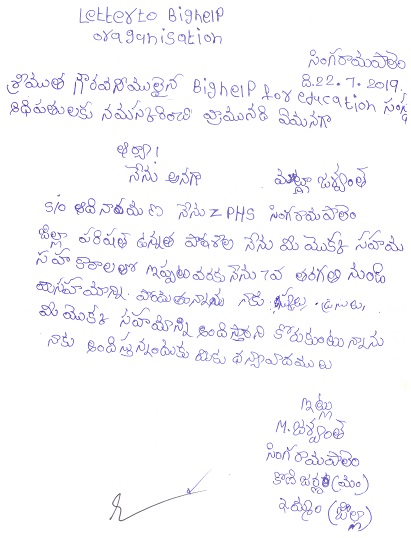 Letter to Bighelp
oraganisation
సింగరాయపాలెం
ది.22.7.2019.
శ్రీయుత గౌరవనీయులైన Bighelp for education సంస్థ
అధిపతులకు నమస్కరించి వ్రాయునది ఏమనగా
ఆర్యా!
నేను అనగా జశ్వంత్
S/o ఆదినారాయణ నేను ZPHS సింగరాయపాలెం
జిల్లా పరిషత్ ఉన్నత పాఠశాల నేను మీ యొక్క సహాయ
సహకారాలతో ఇప్పటివరకు నేను 7వ తరగతి నుండి
సహాయాన్ని పొందుతున్నాను నాకు
మీ యొక్క సహాయాన్ని అందిస్తారని కోరుకుంటున్నాను
నాకు అందిస్తున్నందుకు మీకు ధన్యవాదములు
ఇట్లు
M. జశ్వంత్
సింగరాయపాలెం
కొణిజర్ల (మం)
ఖమ్మం (జిల్లా)